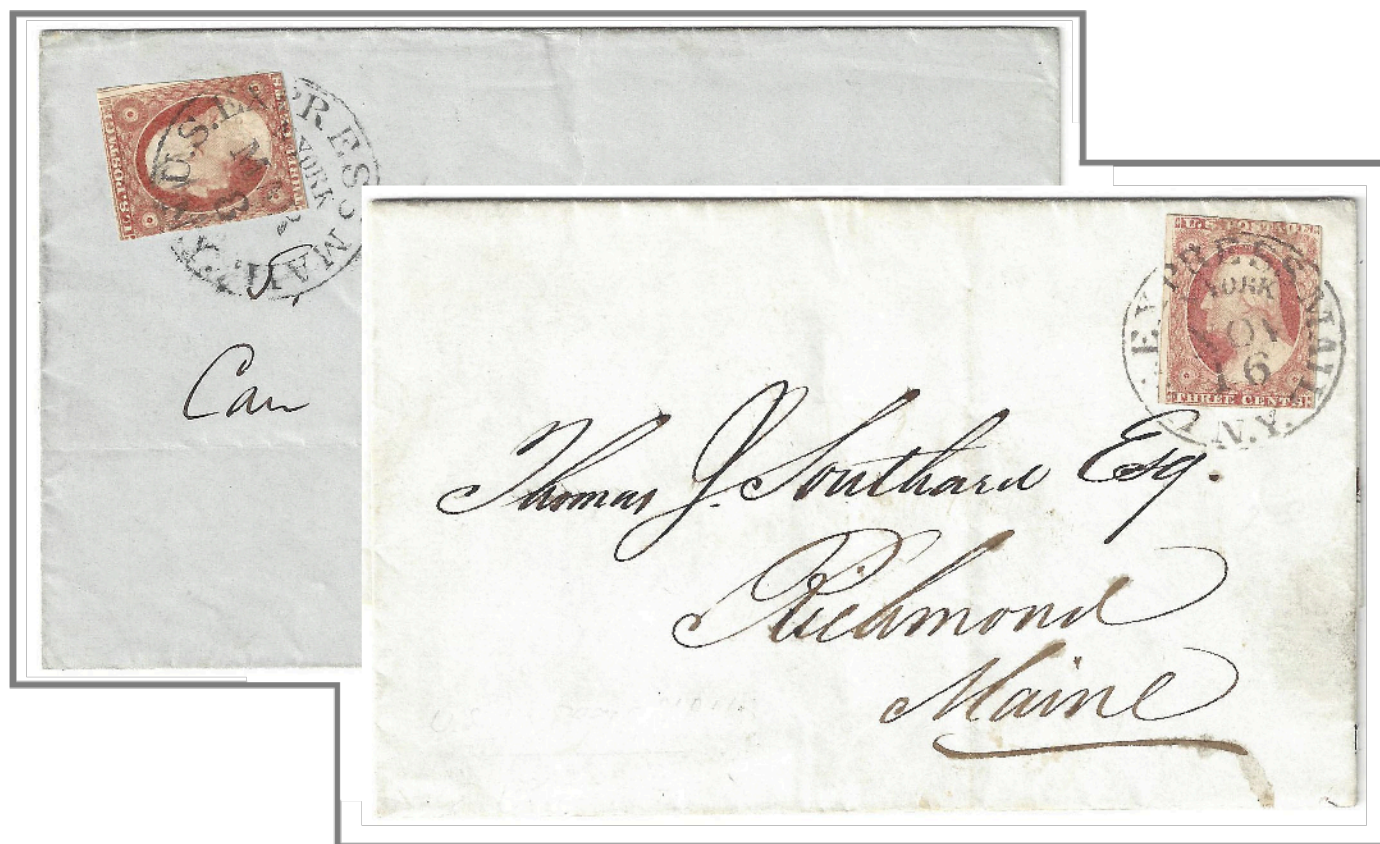 U.S. EXPRESS MAIL
YORK
Can
U.S. POSTAGE
THREE CENTS
EXPRESS MAIL
YORK
NOV
16
N.Y.
Thomas J. Southard Esq.
Richmond
Maine